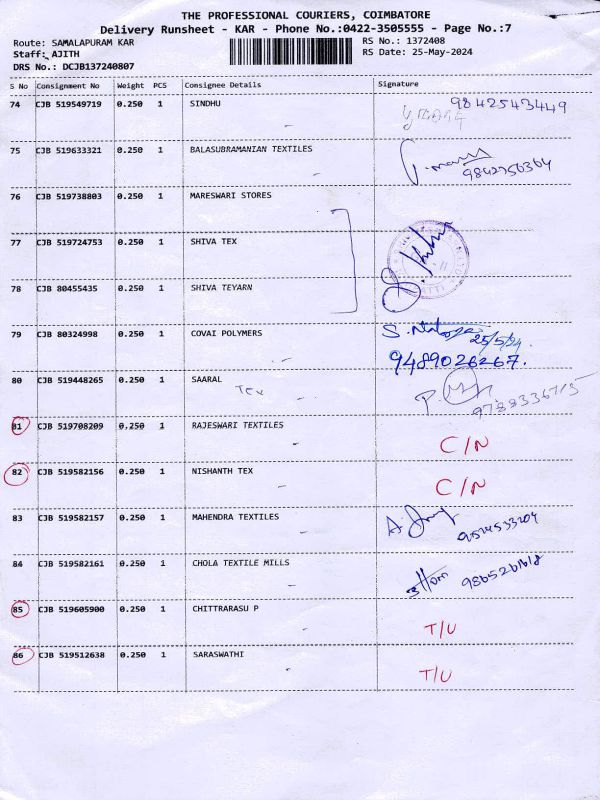 THE PROFESSIONAL COURIERS, COIMBATORE
Delivery Runsheet - KAR - Phone No.:0422-3505555 - Page No.:7
Route: SAMALAPURAM KAR
Staff: AJITH
DRS No.: DCJB137240807
RS No.: 1372408
RS Date: 25-May-2024
S No Consignment No Weight PCS Consignee Details Signature
74 CJB 519549719 0.250 1 SINDHU 9842543449
75 CJB 519633321 0.250 1 BALASUBRAMANIAN TEXTILES 9842756364
76 CJB 519738803 0.250 1 MARESWARI STORES
77 CJB 519724753 0.250 1 SHIVA TEX
78 CJB 80455435 0.250 1 SHIVA TEYARN
79 CJB 80324998 0.250 1 COVAI POLYMERS 25/5/24
9489026267.
80 CJB 519448265 0.250 1 SAARAL Tex
81 CJB 519708209 0.250 1 RAJESWARI TEXTILES C/N
82 CJB 519582156 0.250 1 NISHANTH TEX C/N
83 CJB 519582157 0.250 1 MAHENDRA TEXTILES
84 CJB 519582161 0.250 1 CHOLA TEXTILE MILLS
85 CJB 519605900 0.250 1 CHITTRARASU P T/U
86 CJB 519512638 0.250 1 SARASWATHI T/U